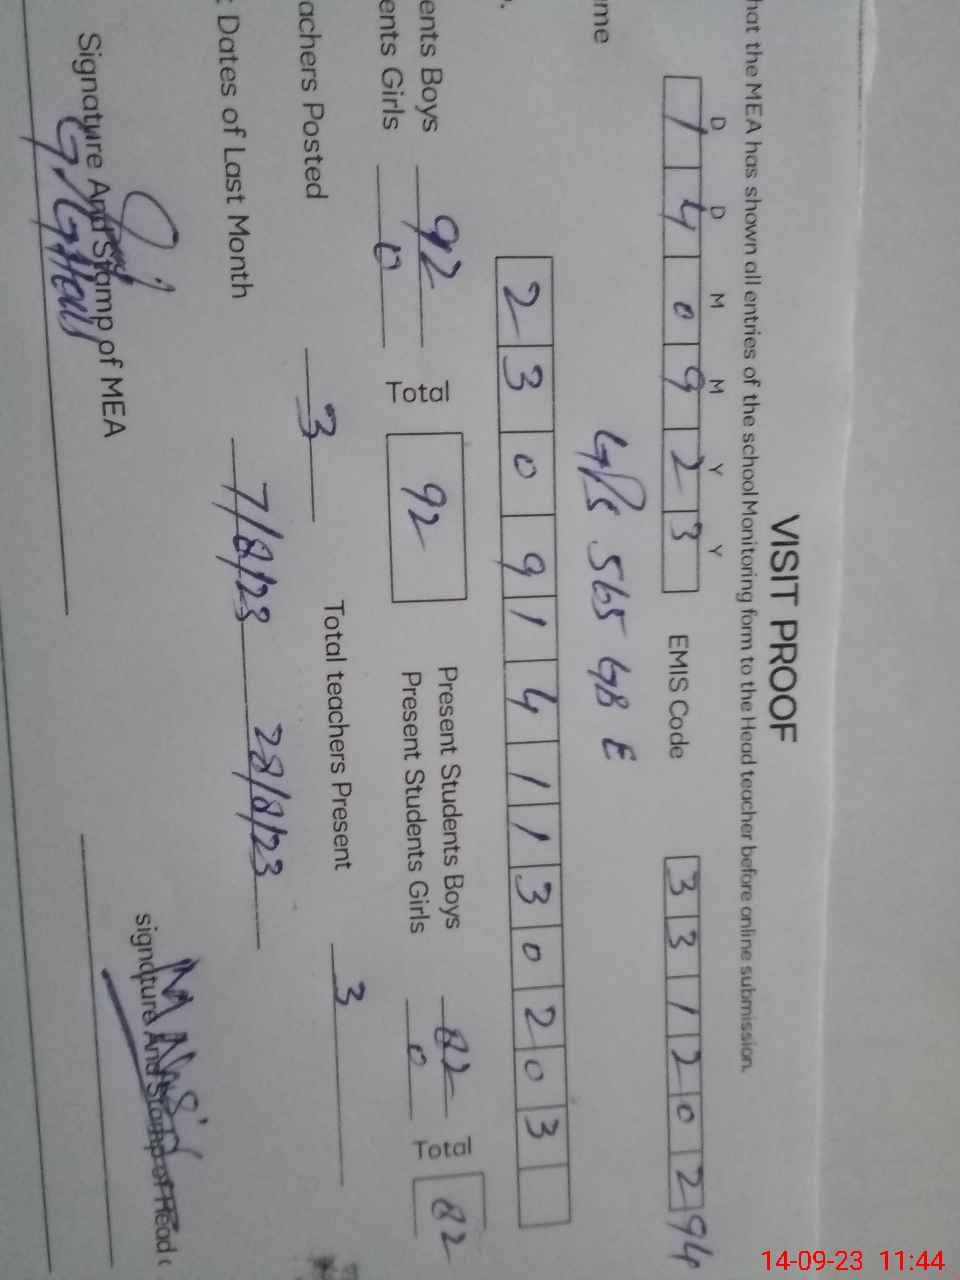 VISIT PROOF
hat the MEA has shown all entries of the school Monitoring form to the Head teacher before online submission.
D D M M Y Y
1 4 0 9 2 3 EMIS Code 3 3 1 2 0 2 94
me G/P/S 565 GB E
2 3 0 9 1 4 1 1 3 0 2 0 3
ents Boys 92 Total 92 Present Students Boys 82 Total 82
ents Girls 0 Present Students Girls 0
achers Posted 3 Total teachers Present 3
: Dates of Last Month 7/8/23 28/8/23
Signature And Stamp of MEA signature And Stamp of Head
14-09-23 11:44